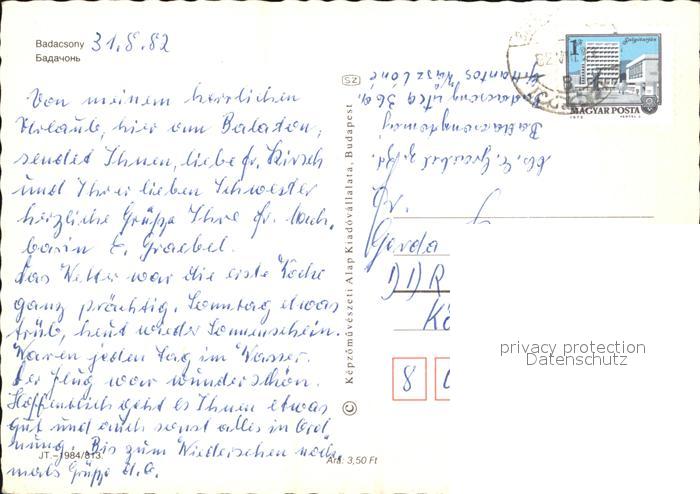 Badacsony 31.8.82
Бадачонь
Von meinem herrlichen
Urlaub, hier am Balaton,
sendet Ihnen, liebe Fr. Kirsch
und Ihrer lieben Schwester
herzliche Grüße Ihre Fr. Nach-
barin E. Graebel.
Das Wetter war die erste Woche
ganz prächtig. Sonntag etwas
trüb, heut wieder Sonnenschein.
Waren jeden Tag im Wasser.
Der Flug war wunderschön.
Hoffentlich geht es Ihnen etwas
gut und auch sonst alles in Ord
nung. Bis zum Wiedersehen noch-
mals Grüße d.O.
JT.–1984/813.
Ára: 3,50 Ft
© Képzőművészeti Alap Kiadóvállalata, Budapest
SZ
1 Ft
Salgótarján
MAGYAR POSTA
Badacsonytomaj
Fr.
Gerda
DDR
8
privacy protection
Datenschutz